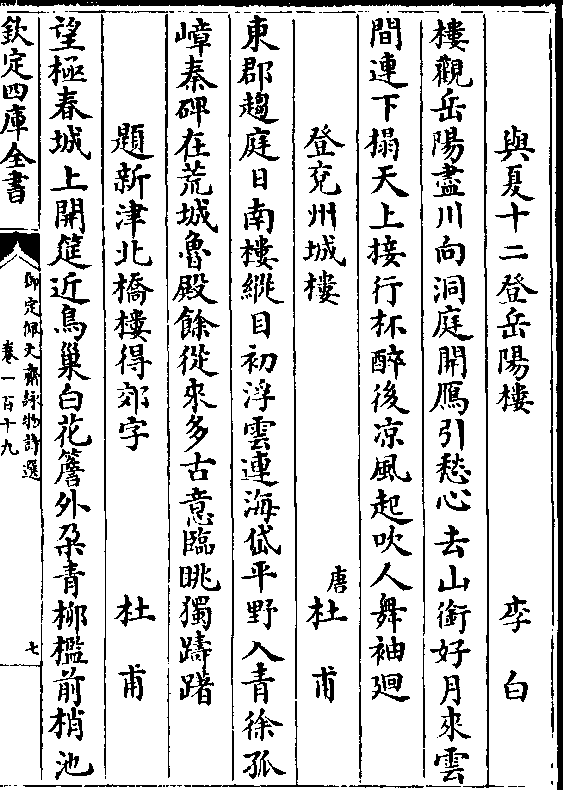 與夏十二登岳陽樓 李白
樓觀岳陽盡川向洞庭開鴈引愁心去山銜好月來雲
間連下榻天上接行杯醉後凉風起吹人舞袖廻
登兖州城樓 唐杜甫
東郡趨庭日南樓縱目初浮雲連海岱平野入青徐孤
嶂秦碑在荒城魯殿餘從來多古意臨眺獨躊躇
題新津北橋樓得郊字 杜甫
望極春城上開筵近鳥巢白花簷外朶青柳檻前梢池
欽定四庫全書
御定佩文齋詠物詩選
卷一百十九
七